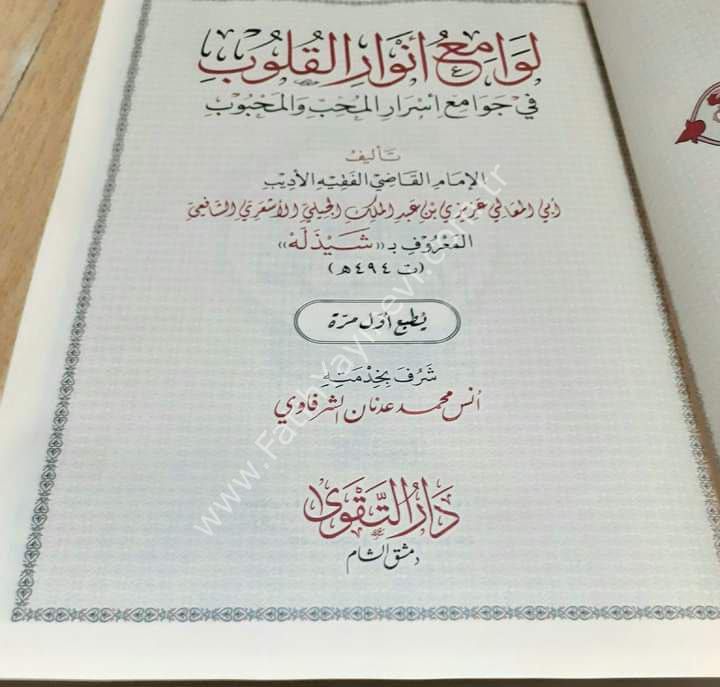 لَوَامِعُ أَنْوَارِ القُلُوبِ
فِي جَوَامِعِ أَسْرَارِ المُحِبِّ وَالمَحْبُوبِ
تَأليف
الإمَامِ القَاضِي الفَقِيهِ الأَدِيبِ
أَبِي المَعَالِي عَزِيزِي بْنِ عَبْدِ المَلِكِ الجِيلِيّ الأَشْعَرِيّ الشَّافِعِيّ
المَعْرُوفِ بِـ «شَيْذَلَهْ»
(ت ٤٩٤ هـ)
يُطْبَعُ أوَّلَ مَرَّة
شَرُفَ بِخِدْمَتِهِ
أنس محمد عدنان الشرفاوي
دَارُ التَّقْوَى
دمشق الشام
www.FatihYayinevi.com.tr